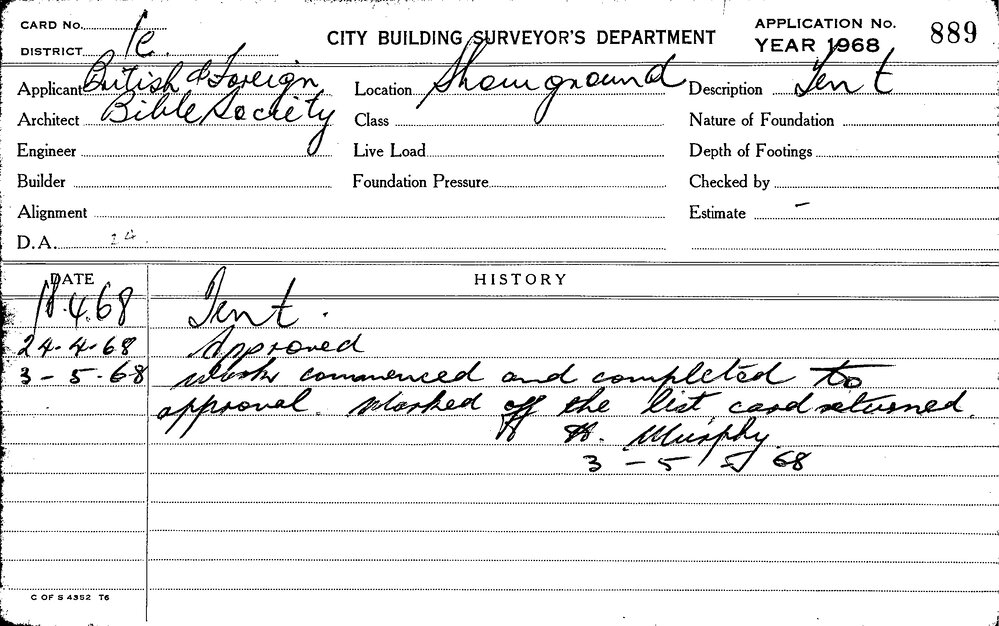 CARD No. 1c. CITY BUILDING SURVEYOR'S DEPARTMENT APPLICATION No. 889
DISTRICT YEAR 1968
Applicant British & Foreign Location Showground Description Tent
Architect Bible Society Class Nature of Foundation
Engineer Live Load Depth of Footings
Builder Foundation Pressure Checked by
Alignment Estimate –
D.A. 24.
DATE HISTORY
18.4.68 Tent.
24-4-68 Approved
3-5-68 Work commenced and completed to
approval. Marked off the list, card returned.
H. Murphy
3-5-68
C OF S 4352 T6